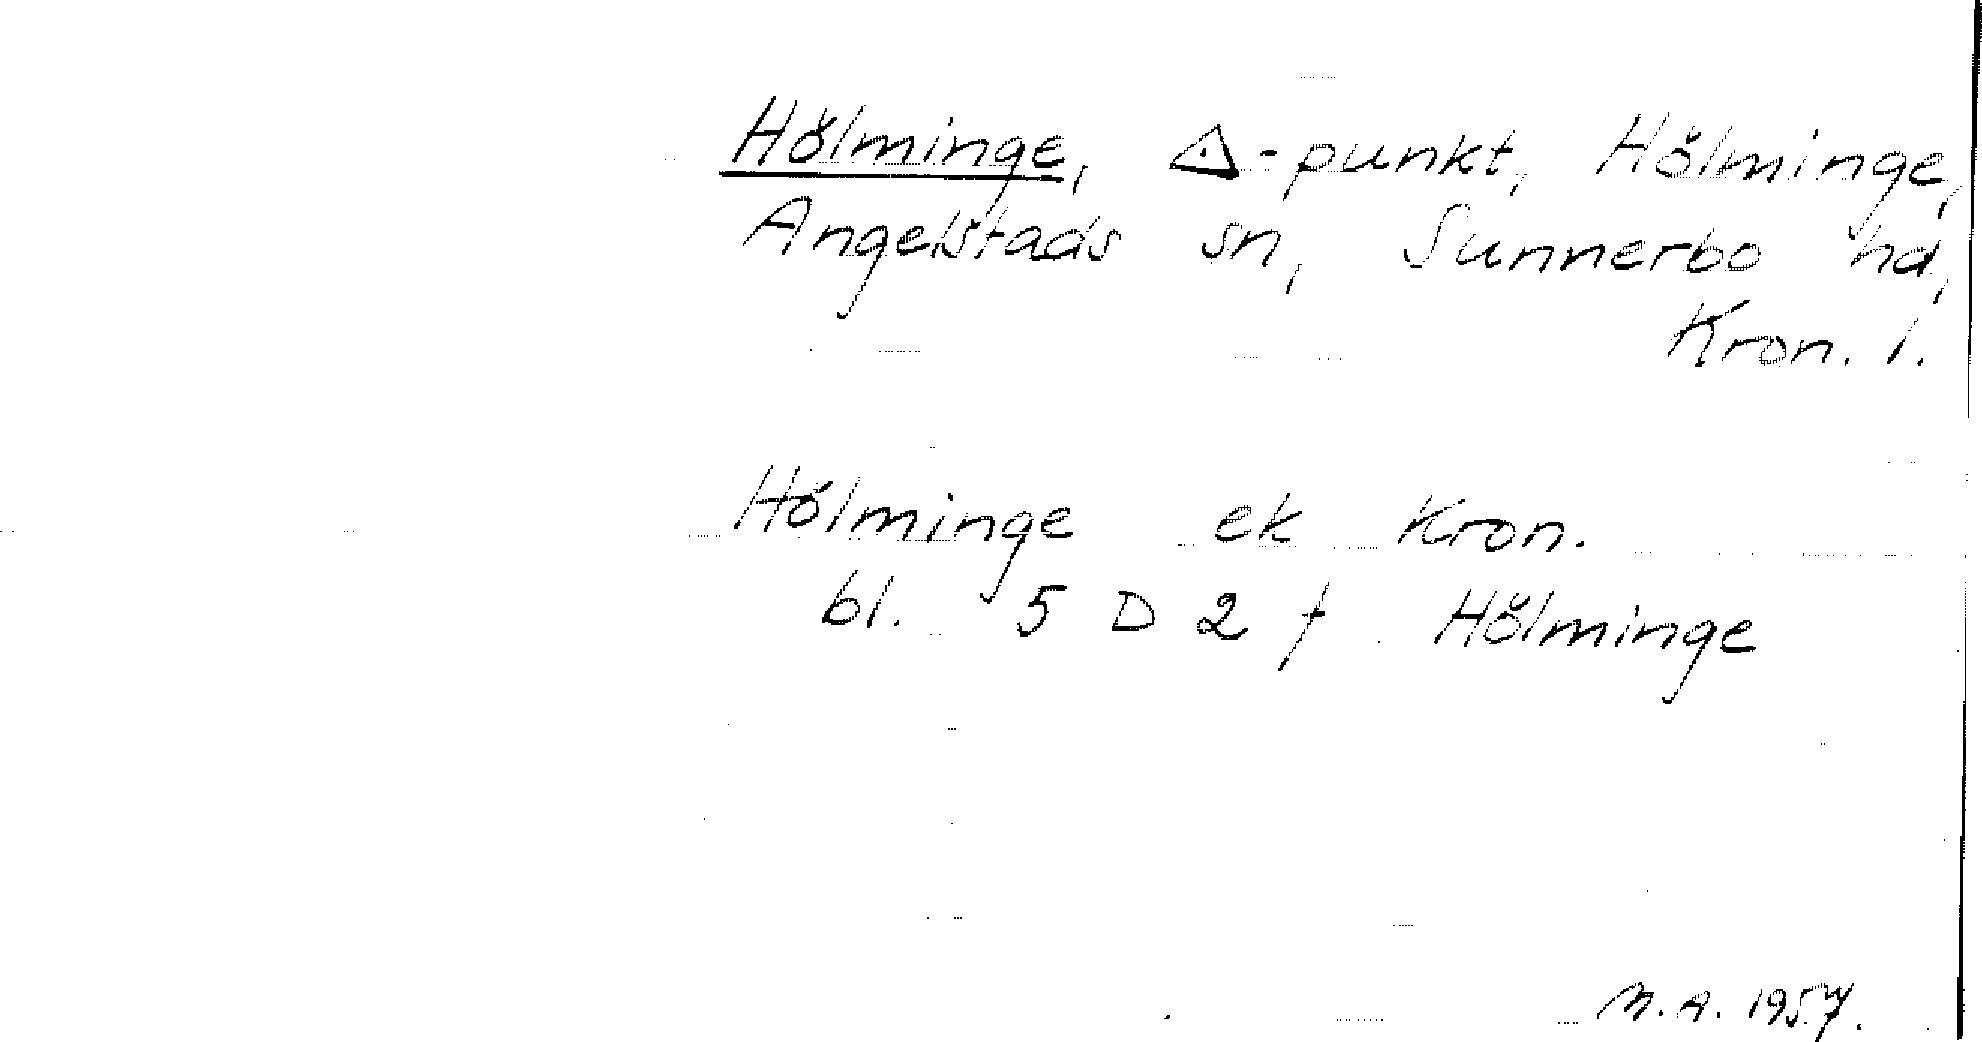 Hölminge, △-punkt, Hölminge,
Angelstads sn, Sunnerbo hd,
Kron. l.
Hölminge ek Kron.
bl. 5 D 2 f Hölminge
M.A. 1957.